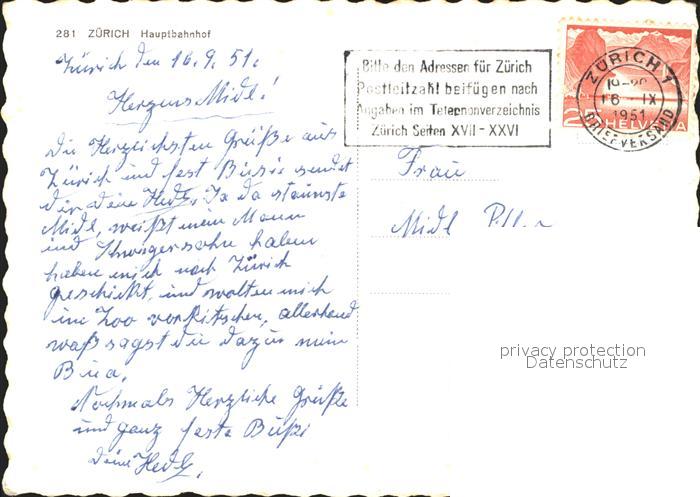 281 ZÜRICH Hauptbahnhof
Zürich den 16.9.51.
Herzens Midl!
Die Herzlichsten Grüße aus
Zürich und fest Busis sendet
dir deine Hedy. Ja da staunste
Midl, weißt mein Mann
und Schwiegersohn haben
haben mich nach Zürich
geschickt, und wolten mich
im Zoo verkitschen, allerhand
waß sagst du dazu mein
Bua.
Nochmals Herzliche Grüße
und ganz feste Bußi
deine Hedy.
Bitte den Adressen für Zürich
Postleitzahl beifügen nach
Angaben im Telephonverzeichnis
Zürich Seiten XVII - XXVI
ZÜRICH 1
16. IX
1951
BRIEFVERSAND
HELVETIA
Frau
Midl
privacy protection
Datenschutz